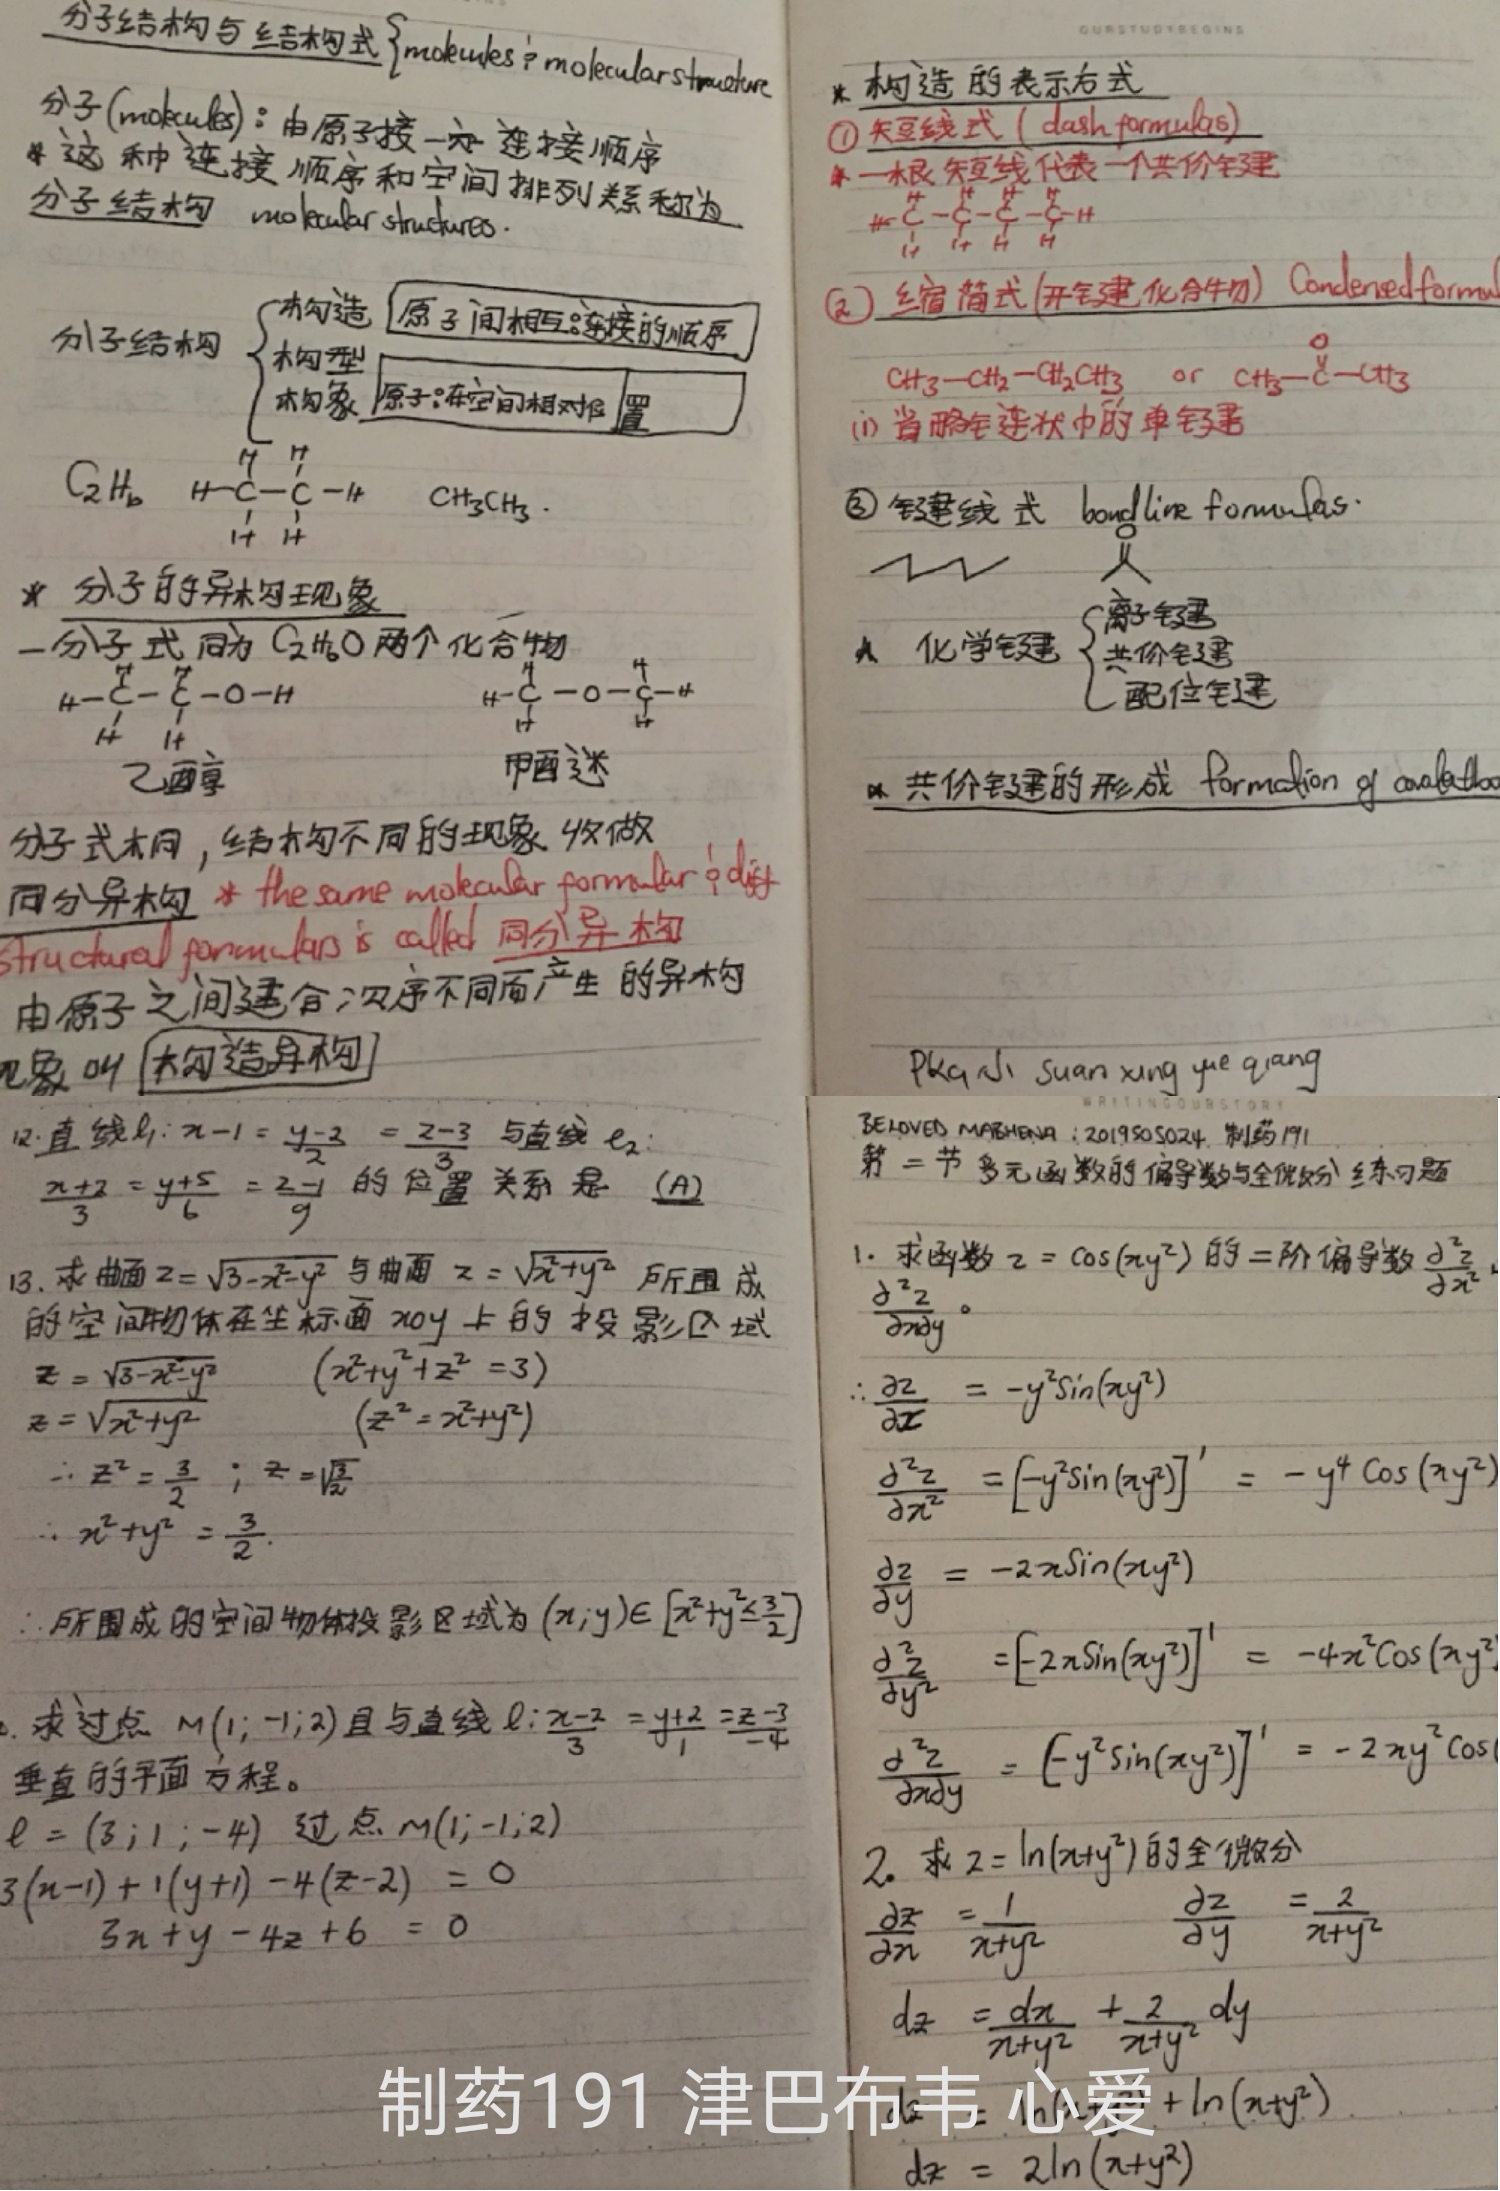 分子结构与结构式 { molecules & molecular structure
分子(molecules): 由原子按一定连接顺序
* 这种连接顺序和空间排列关系称为
分子结构 molecular structures.
分子结构 { 构造 原子间相互连接的顺序
构型
构象 原子在空间相对位置
C2H6 H-C-C-H CH3CH3.
* 分子的异构现象
- 分子式同为 C2H6O 两个化合物
H-C-C-O-H H-C-O-C-H
乙醇 甲醚
分子式相同, 结构不同的现象
同分异构 * the same molecular formular & diff
structural formulars is called 同分异构
由原子之间连合次序不同而产生的异构
现象 构造异构
OURSTUDYBEGINS
* 构造的表示方式
① 短线式 (dash formulas)
* 一根短线代表一个共价键
H-C-C-C-C-H
② 缩简式 (开键化合物) Condensed formul
CH3-CH2-CH2CH3 or CH3-C-CH3
(i) 省略链状中的单键
③ 键线式 bondline formulas.
化学键 { 离子键
共价键
配位键
* 共价键的形成 formation of
PKa 小 suan xing yue qiang
WRITINGOURSTORY
12. 直线 l1: x-1 = (y-2)/2 = (z-3)/3 与直线 l2:
(x+2)/3 = (y+5)/6 = (z-1)/9 的位置关系是 (A)
13. 求曲面 z = √(3-x²-y²) 与曲面 z = √(x²+y²) 所围成
的空间物体在坐标面 xoy 上的投影区域
z = √(3-x²-y²) (x²+y²+z² = 3)
z = √(x²+y²) (z² = x²+y²)
∴ z² = 3/2 ; z = √(3/2)
∴ x²+y² = 3/2.
∴ 所围成的空间物体投影区域为 (x;y)∈[x²+y²≤3/2]
求过点 M(1;-1;2) 且与直线 l: (x-2)/3 = (y+2)/1 = (z-3)/-4
垂直的平面方程。
l = (3;1;-4) 过点 M(1;-1;2)
3(x-1)+1(y+1)-4(z-2) = 0
3x+y-4z+6 = 0
BELOVED MABHENA: 2019505024 制药191
第二节 多元函数的偏导数与全微分练习题
1. 求函数 z = cos(xy²) 的二阶偏导数 ∂²z/∂x²,
∂²z/∂x∂y。
∴ ∂z/∂x = -y²sin(xy²)
∂²z/∂x² = [-y²sin(xy²)]' = -y⁴ Cos(xy²)
∂z/∂y = -2xSin(xy²)
∂²z/∂y² = [-2xSin(xy²)]' = -4x²Cos(xy²)
∂²z/∂x∂y = [-y²Sin(xy²)]' = -2xy²Cos(
2. 求 z = ln(x+y²) 的全微分
∂z/∂x = 1/(x+y²) ∂z/∂y = 2/(x+y²)
dz = dx/(x+y²) + 2/(x+y²) dy
dz = + ln(x+y²)
dz = 2ln(x+y²)
制药191 津巴布韦 心爱